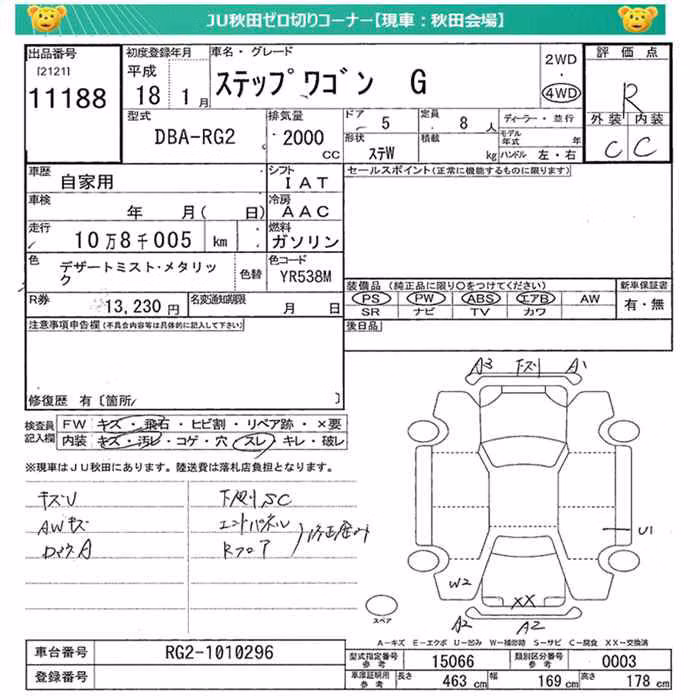 JU秋田ゼロ切りコーナー【現車：秋田会場】
出品番号
[2121]
11188
初度登録年月
平成
18 1月
車名・グレード
ステップワゴン G
2WD
・
4WD
評価点
R
外装 内装
C C
型式
DBA-RG2
排気量
2000
CC
ドア
5
定員
8 人
ディーラー・並行
形状
ステW
積載
kg
モデル年式 年
ハンドル 左・右
車歴
自家用
シフト
IAT
セールスポイント(正常に機能するものに限ります)
車検
年 月( 日)
冷房
AAC
走行
10万8千005 km
燃料
ガソリン
色
デザートミスト・メタリック
色替
色コード
YR538M
装備品 (純正品に限り○をつけてください)
新車保証書
PS PW ABS エアB AW
有・無
SR ナビ TV カワ
R券
13,230 円
名変通知期限
月 日
後日品
注意事項申告欄(不具合内容等は具体的に記入して下さい)
修復歴 有〔箇所 〕
検査員記入欄
FW キズ・飛石・ヒビ割・リペア跡・×要
内装 キズ・汚レ・コゲ・穴・スレ・キレ・破レ
※現車はJU秋田にあります。陸送費は落札店負担となります。
A3 下ズリ A1
キズU
AWキズ
下廻りSC
エンドパネル
Rフロア
U1
W2
XX
A2 A2
スペア
A－キズ E－エクボ U－凹み W－補修跡 S－サビ C－腐食 XX－交換済
車台番号
RG2-1010296
登録番号
型式指定番号 参考
15066
類別区分番号 参考
0003
車庫証明用 参考
長さ 463 cm
幅 169 cm
高さ 178 cm